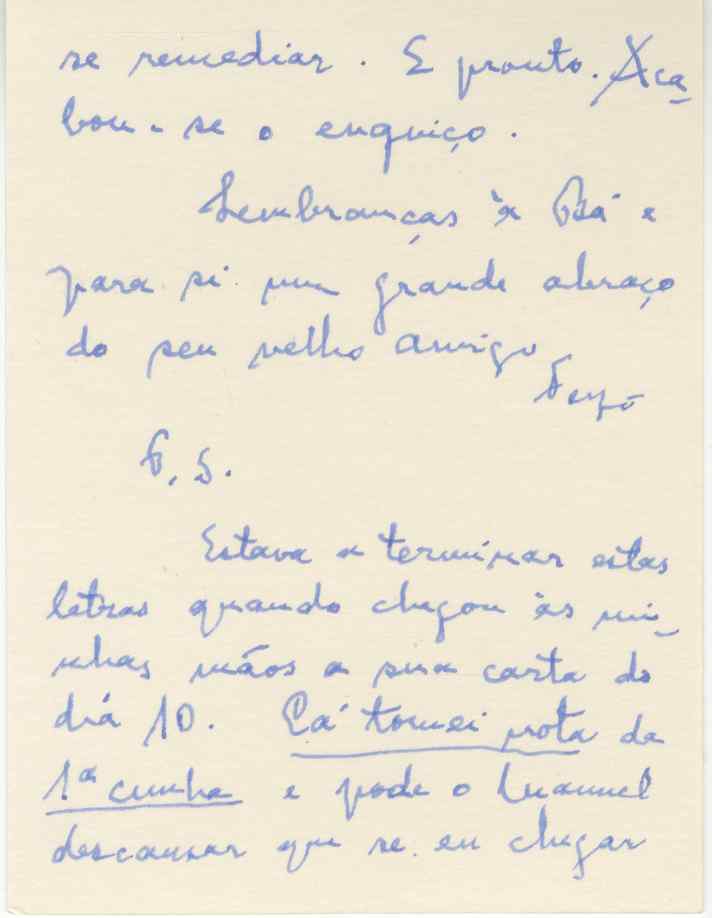 se remediar. E pronto. Aca-
bou-se o enguiço.
Lembranças à Bá e
para si um grande abraço
do seu velho amigo
P.S.
Estava a terminar estas
letras quando chegou às mi-
nhas mãos a sua carta do
dia 10. Cá tomei nota da
1ª cunha e pode o Manuel
descansar que se eu chegar